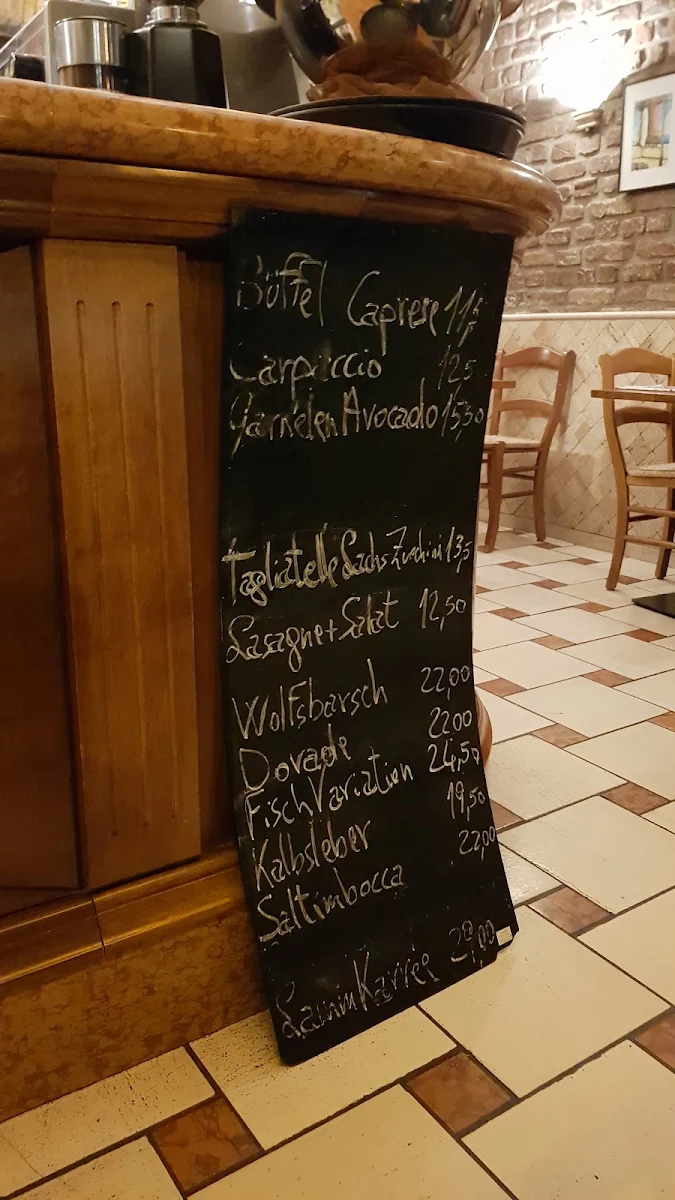 Büffel Caprese 11,5
Carpaccio 12,5
Garnelen Avocado 15,50
Tagliatelle Lachs Zucchini 13,5
Lasagne + Salat 12,50
Wolfsbarsch 22,00
Dorade 22,00
Fisch Variation 24,50
Kalbsleber 19,50
Saltimbocca 22,00
Lamm Karrée 29,00